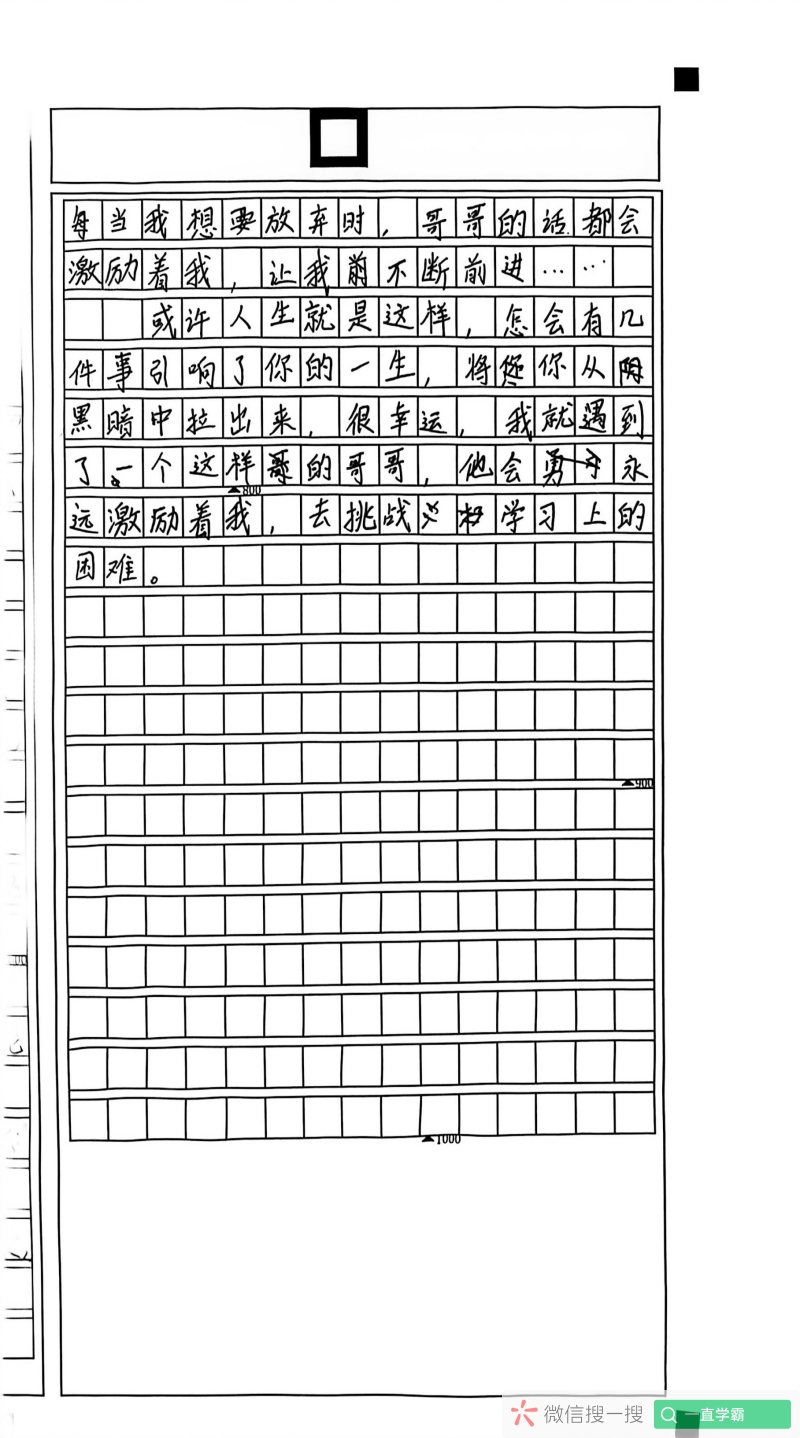 每当我想要放弃时，哥哥的话都会
激励着我，让我前不断前进……
或许人生就是这样，怎会有几
件事引响了你的一生，将你从阴
黑暗中拉出来，很幸运，我就遇到
了一个这样的哥哥，他会永
800
远激励着我，去挑战学习上的
困难。
900
1000
微信搜一搜
一直学霸